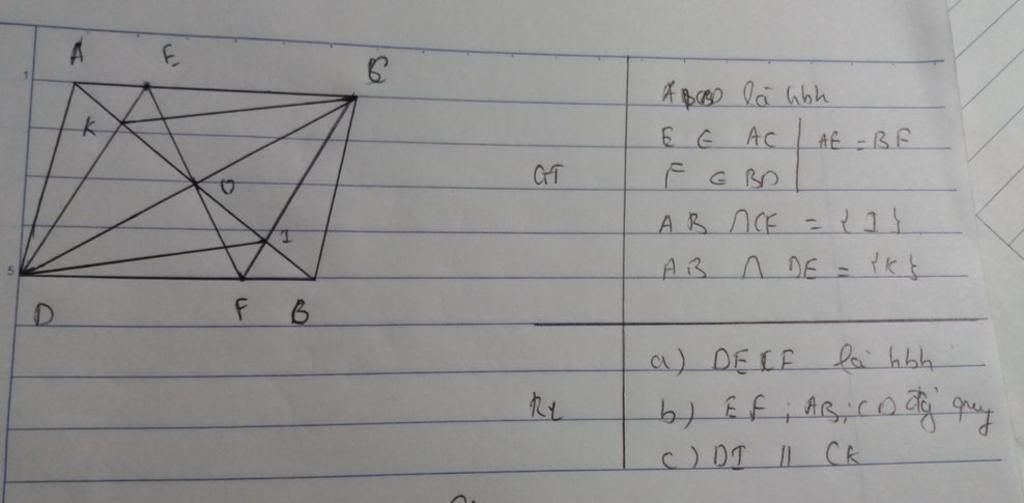 A E C
K
O
I
D F B
GT
ABCD là hbh
E ∈ AC | AE = BF
F ∈ BD
AB ∩ CF = { I }
AB ∩ DE = {K}
KL
a) DECF là hbh
b) EF ; AB ; CD đg quy
c) DI || CK